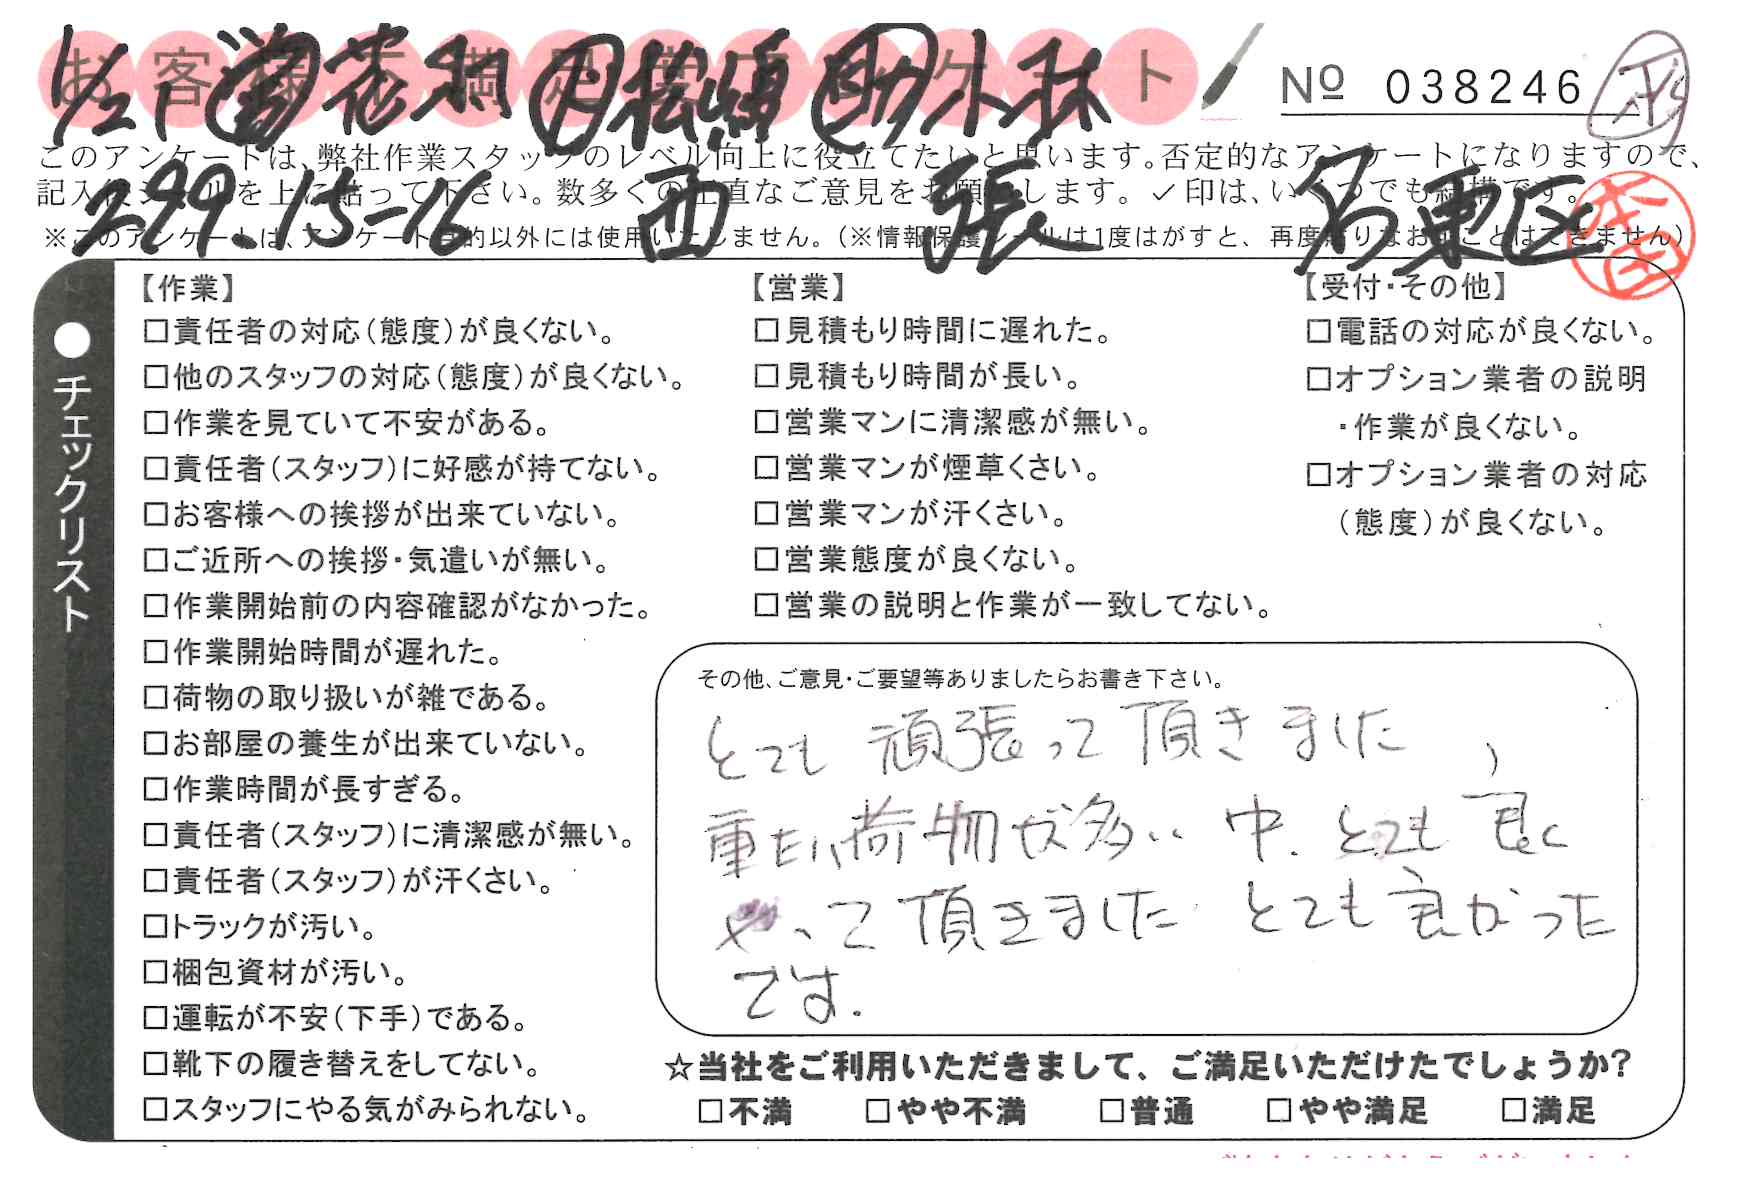 お客様 足 ケート Nº 038246
1/21 花 松 助 外林
このアンケートは、弊社作業スタッフのレベル向上に役立てたいと思います。否定的なアンケートになりますので、
記入後シールを上に貼って下さい。数多くの正直なご意見をお願いします。✓印は、いくつでも結構です。
299.15-16 西 張 名東区 本田
※このアンケートは、アンケート目的以外には使用いたしません。(※情報保護シールは1度はがすと、再度貼りなおすことはできません)
●チェックリスト
【作業】
□責任者の対応(態度)が良くない。
□他のスタッフの対応(態度)が良くない。
□作業を見ていて不安がある。
□責任者(スタッフ)に好感が持てない。
□お客様への挨拶が出来ていない。
□ご近所への挨拶・気遣いが無い。
□作業開始前の内容確認がなかった。
□作業開始時間が遅れた。
□荷物の取り扱いが雑である。
□お部屋の養生が出来ていない。
□作業時間が長すぎる。
□責任者(スタッフ)に清潔感が無い。
□責任者(スタッフ)が汗くさい。
□トラックが汚い。
□梱包資材が汚い。
□運転が不安(下手)である。
□靴下の履き替えをしてない。
□スタッフにやる気がみられない。
【営業】
□見積もり時間に遅れた。
□見積もり時間が長い。
□営業マンに清潔感が無い。
□営業マンが煙草くさい。
□営業マンが汗くさい。
□営業態度が良くない。
□営業の説明と作業が一致してない。
【受付・その他】
□電話の対応が良くない。
□オプション業者の説明
・作業が良くない。
□オプション業者の対応
(態度)が良くない。
その他、ご意見・ご要望等ありましたらお書き下さい。
とても 頑張って頂きました、
重たい荷物が多い中、とても良く
やって頂きました とても良かった
です.
☆当社をご利用いただきまして、ご満足いただけたでしょうか?
□不満 □やや不満 □普通 □やや満足 □満足